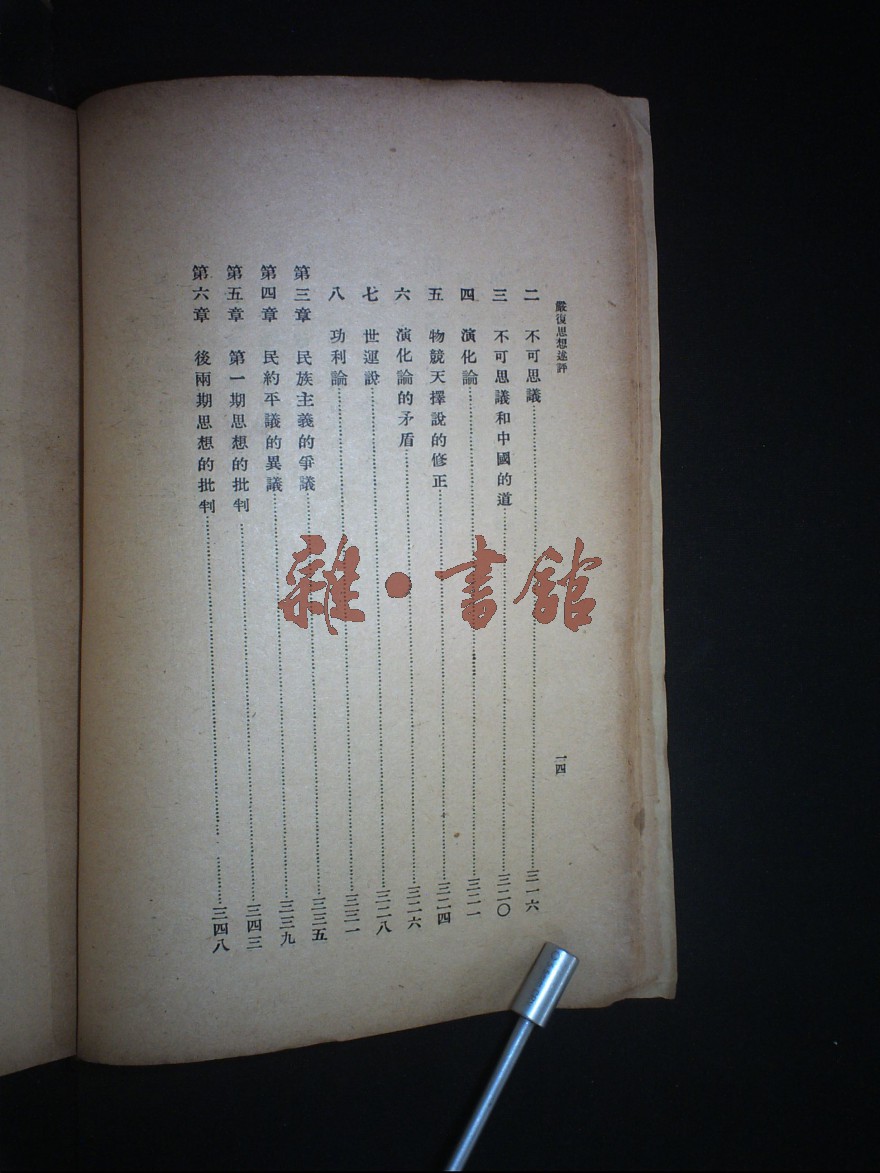 嚴復思想述評
一四
二 不可思議……三一六
三 不可思議和中國的道……三二〇
四 演化論……三二一
五 物競天擇說的修正……三二四
六 演化論的矛盾……三二六
七 世運說……三二八
八 功利論……三三一
第三章 民族主義的爭議……三三五
第四章 民約平議的異議……三三九
第五章 第一期思想的批判……三四三
第六章 後兩期思想的批判……三四八
雜·書館